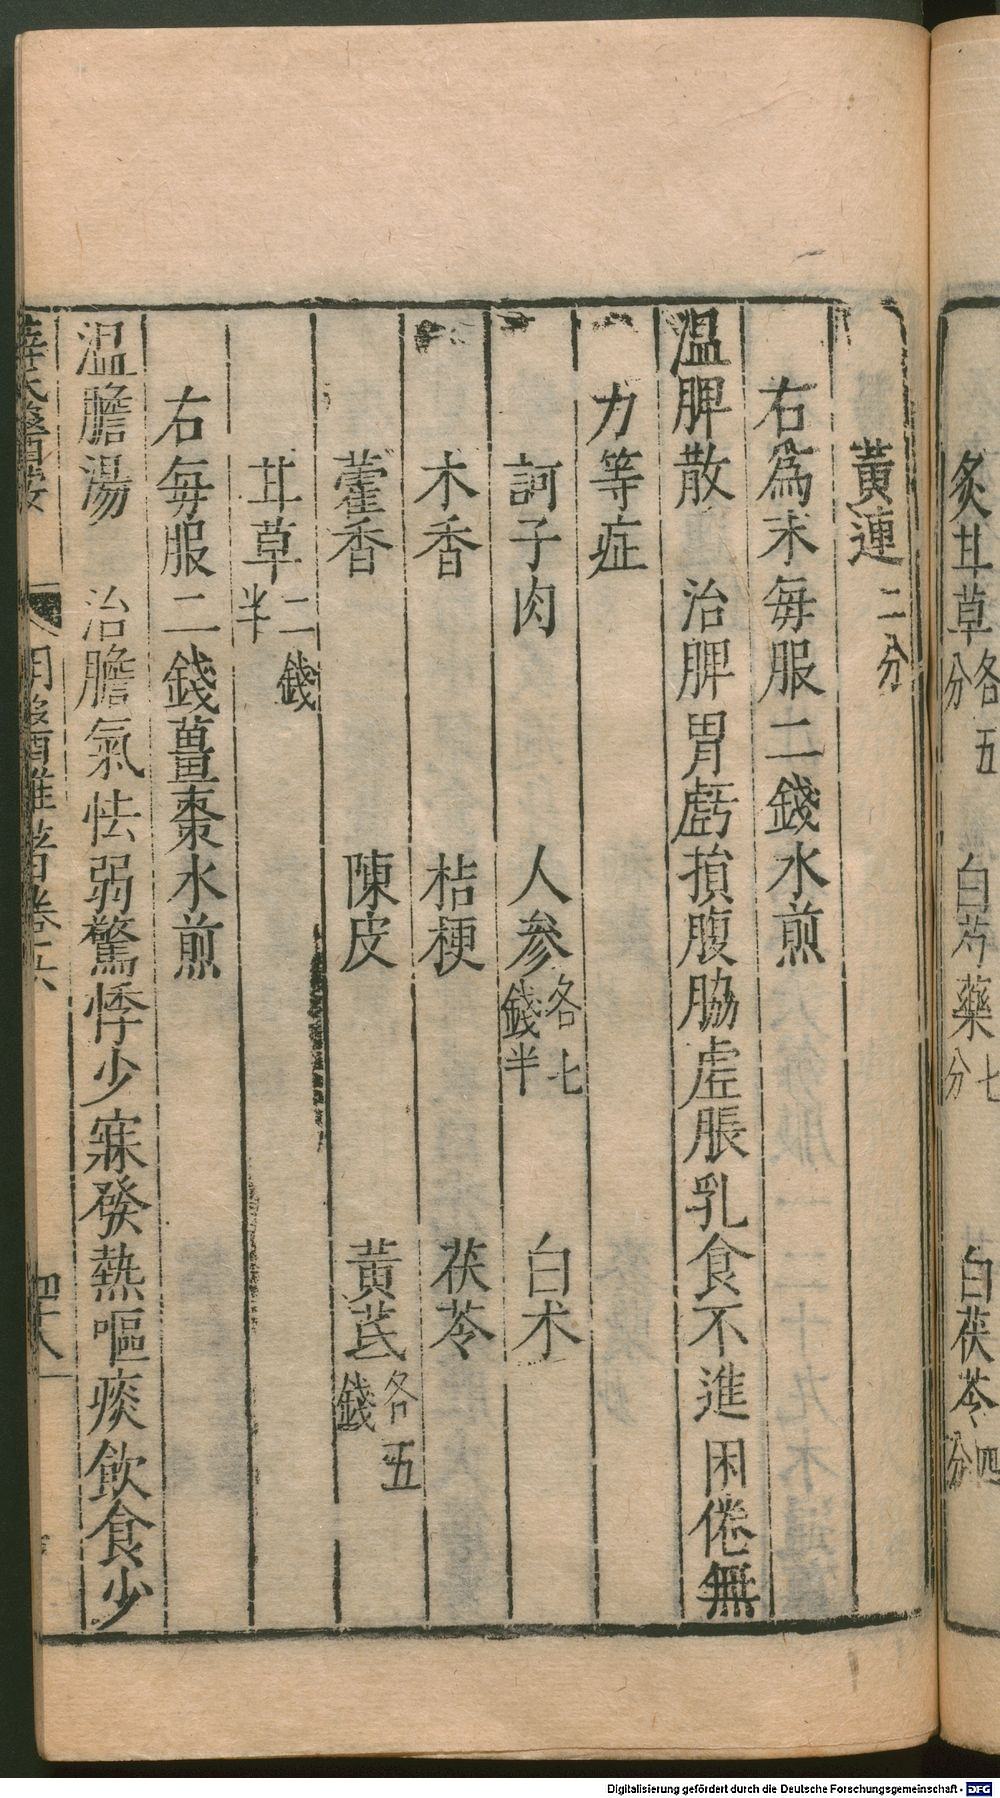 炙甘草各五分 白芍藥七分 白茯苓四分
黃連二分
右爲末每服二錢水煎
温脾散 治脾胃虧損腹脇虛脹乳食不進困倦無
力等症
訶子肉 人參各七錢半 白术
木香 桔梗 茯苓
藿香 陳皮 黃芪各五錢
甘草二錢半
右每服二錢薑棗水煎
温膽湯 治膽氣怯弱驚悸少寐發熱嘔痰飲食少
薛氏醫按 明醫雜著卷六 四十八
Digitalisierung gefördert durch die Deutsche Forschungsgemeinschaft - DFG